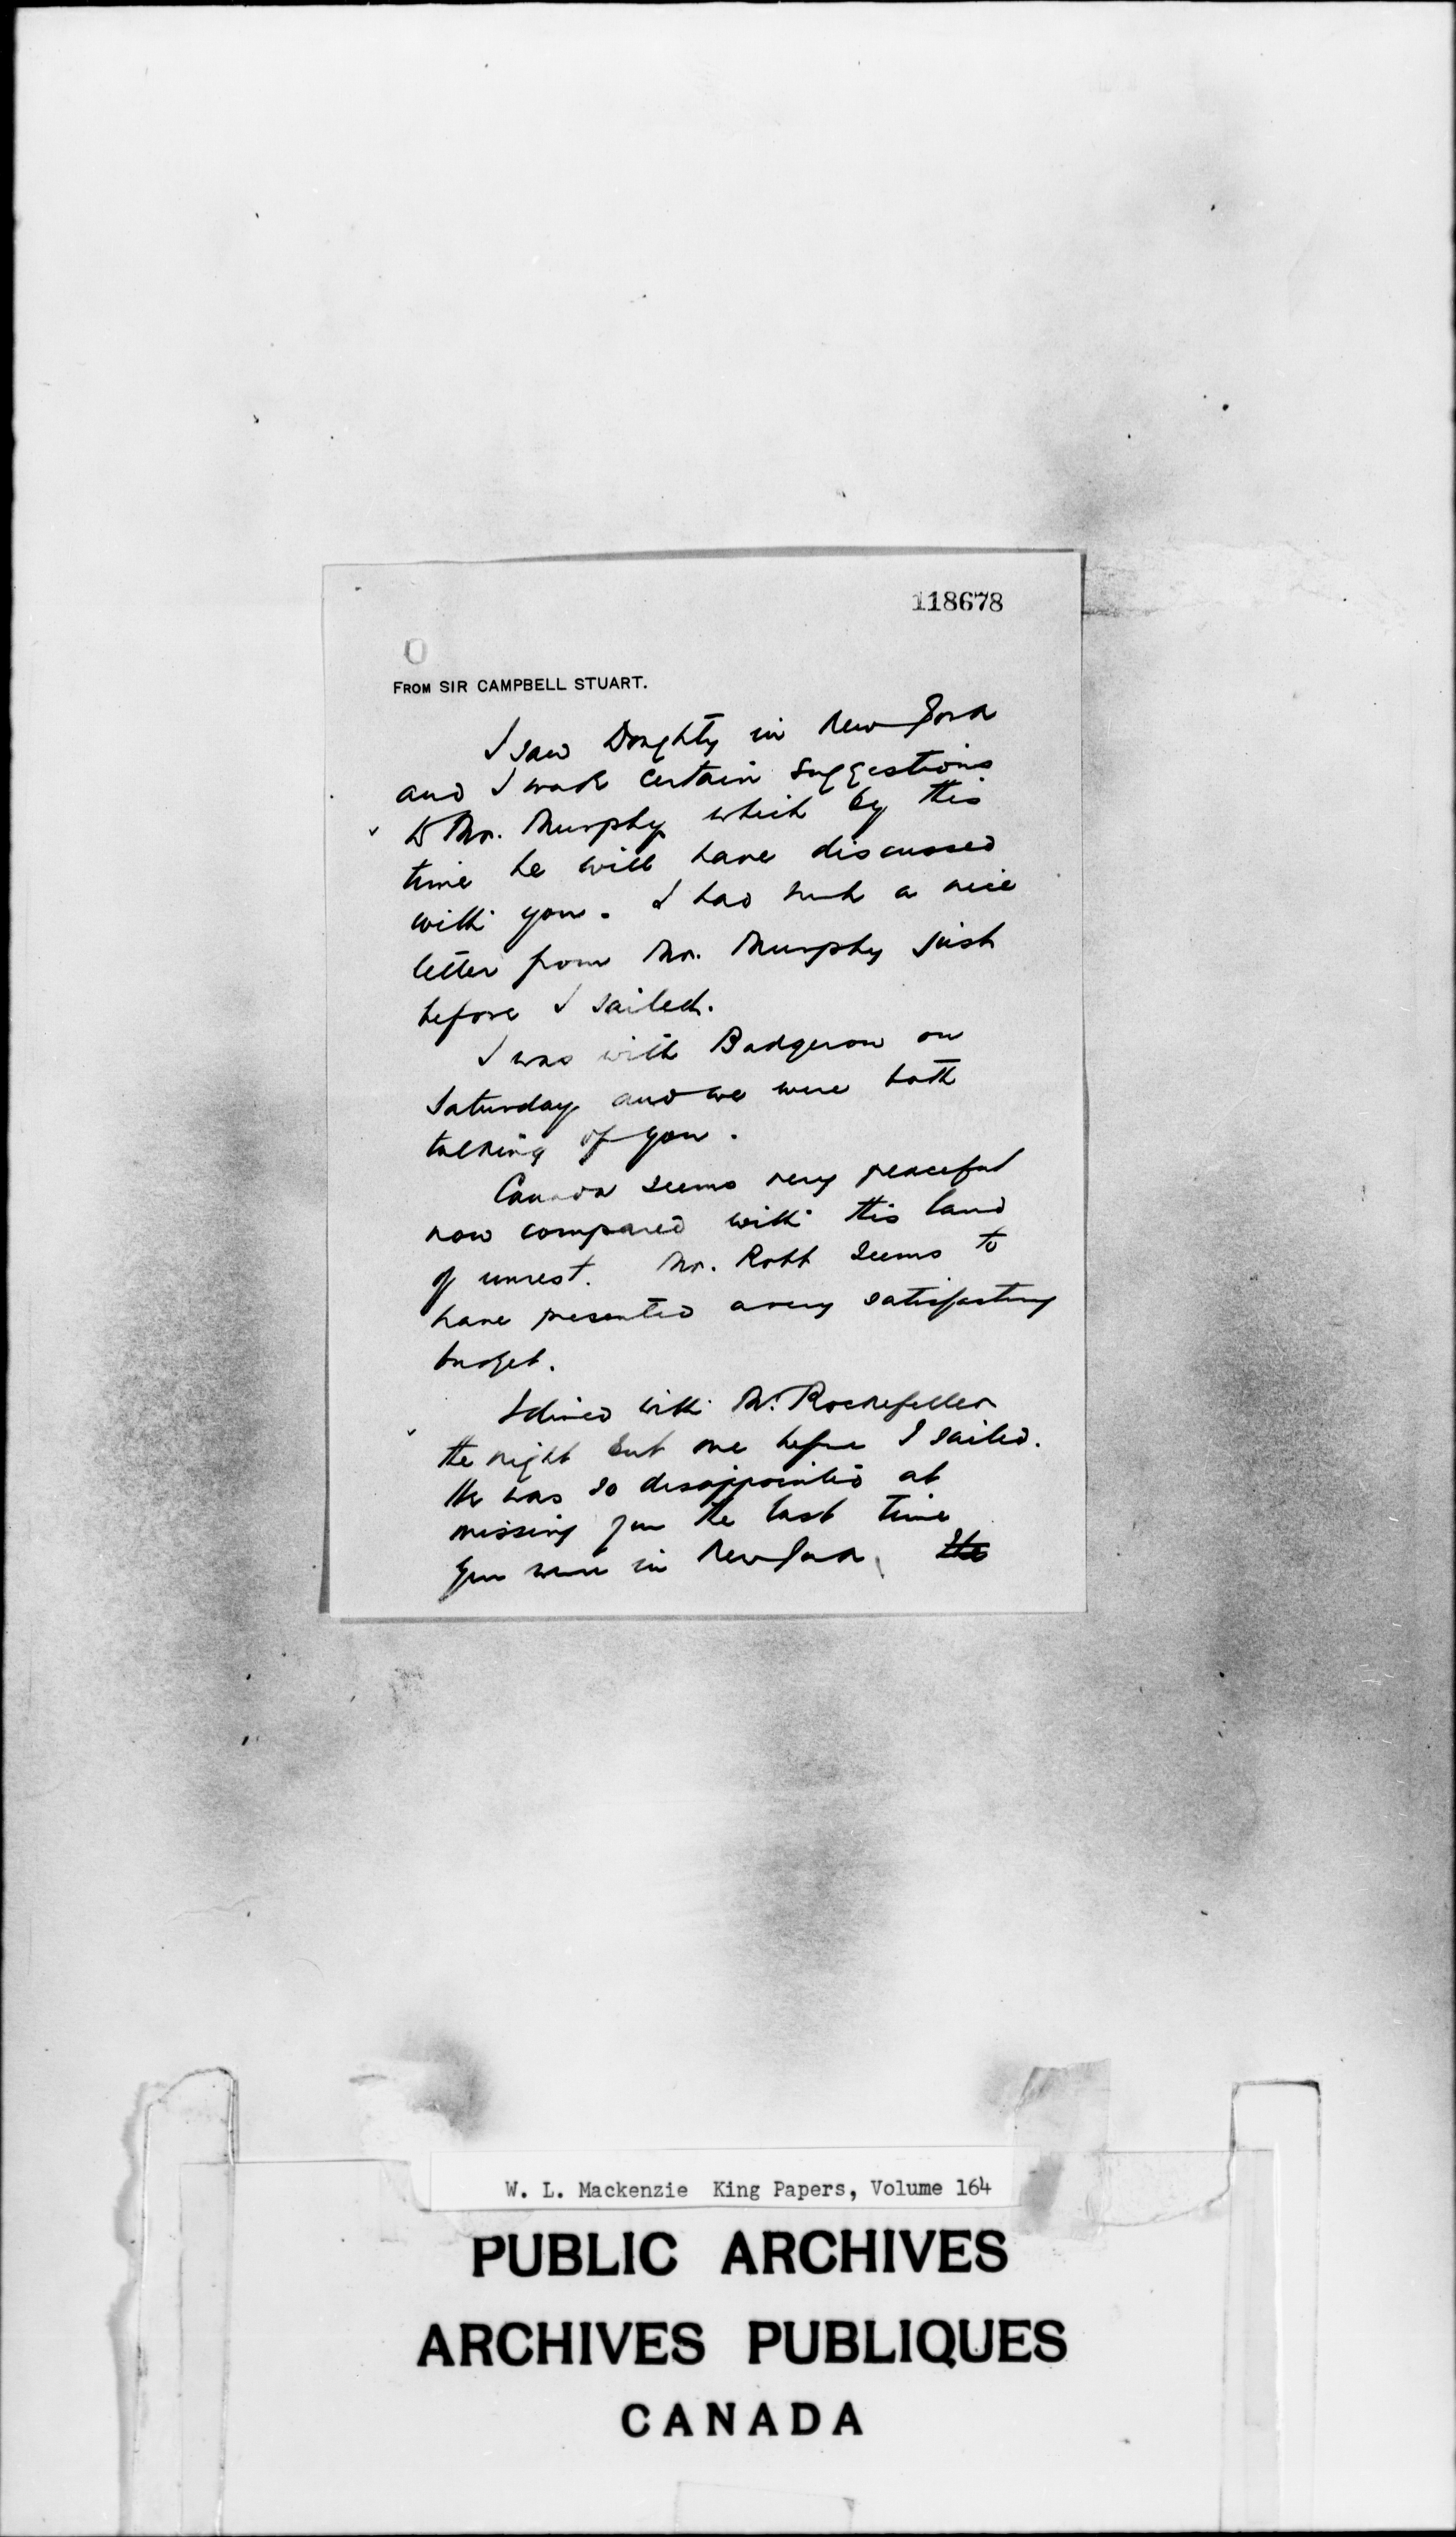 118678
FROM SIR CAMPBELL STUART.
I saw Doughty in New York
and I made certain suggestions
to Mr. Murphy which by this
time he will have discussed
with you. I had such a nice
letter from Mr. Murphy just
before I sailed.
I was with Badgerow on
Saturday and we were both
talking of you.
Canada seems very peaceful
now compared with this land
of unrest. Mr. Robb seems to
have presented a very satisfactory
budget.
I dined with Mr. Rockefeller
the night but one before I sailed.
He was so disappointed at
missing you the last time
you were in New York.
W. L. Mackenzie King Papers, Volume 164
PUBLIC ARCHIVES
ARCHIVES PUBLIQUES
CANADA